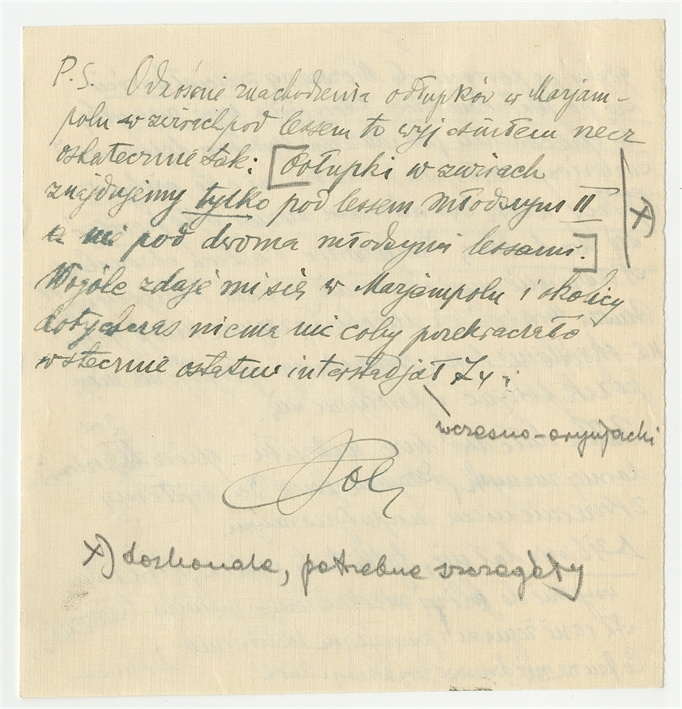 P.S. Odnośnie znachodzenia odłupków w Marjam-
polu w żwirach pod lessem to wyjaśniłem rzecz
ostatecznie tak: [Odłupki w żwirach
znajdujemy tylko pod lessem młodszym II
a nie pod dwoma młodszymi lessami.] x)
Wogóle zdaje mi się w Marjampolu i okolicy
dotychczas niema nic coby przekraczało
wstecznie ostatni interstadjał
wczesno-oryniacki
x) doskonałe, potrzebne szczegóły